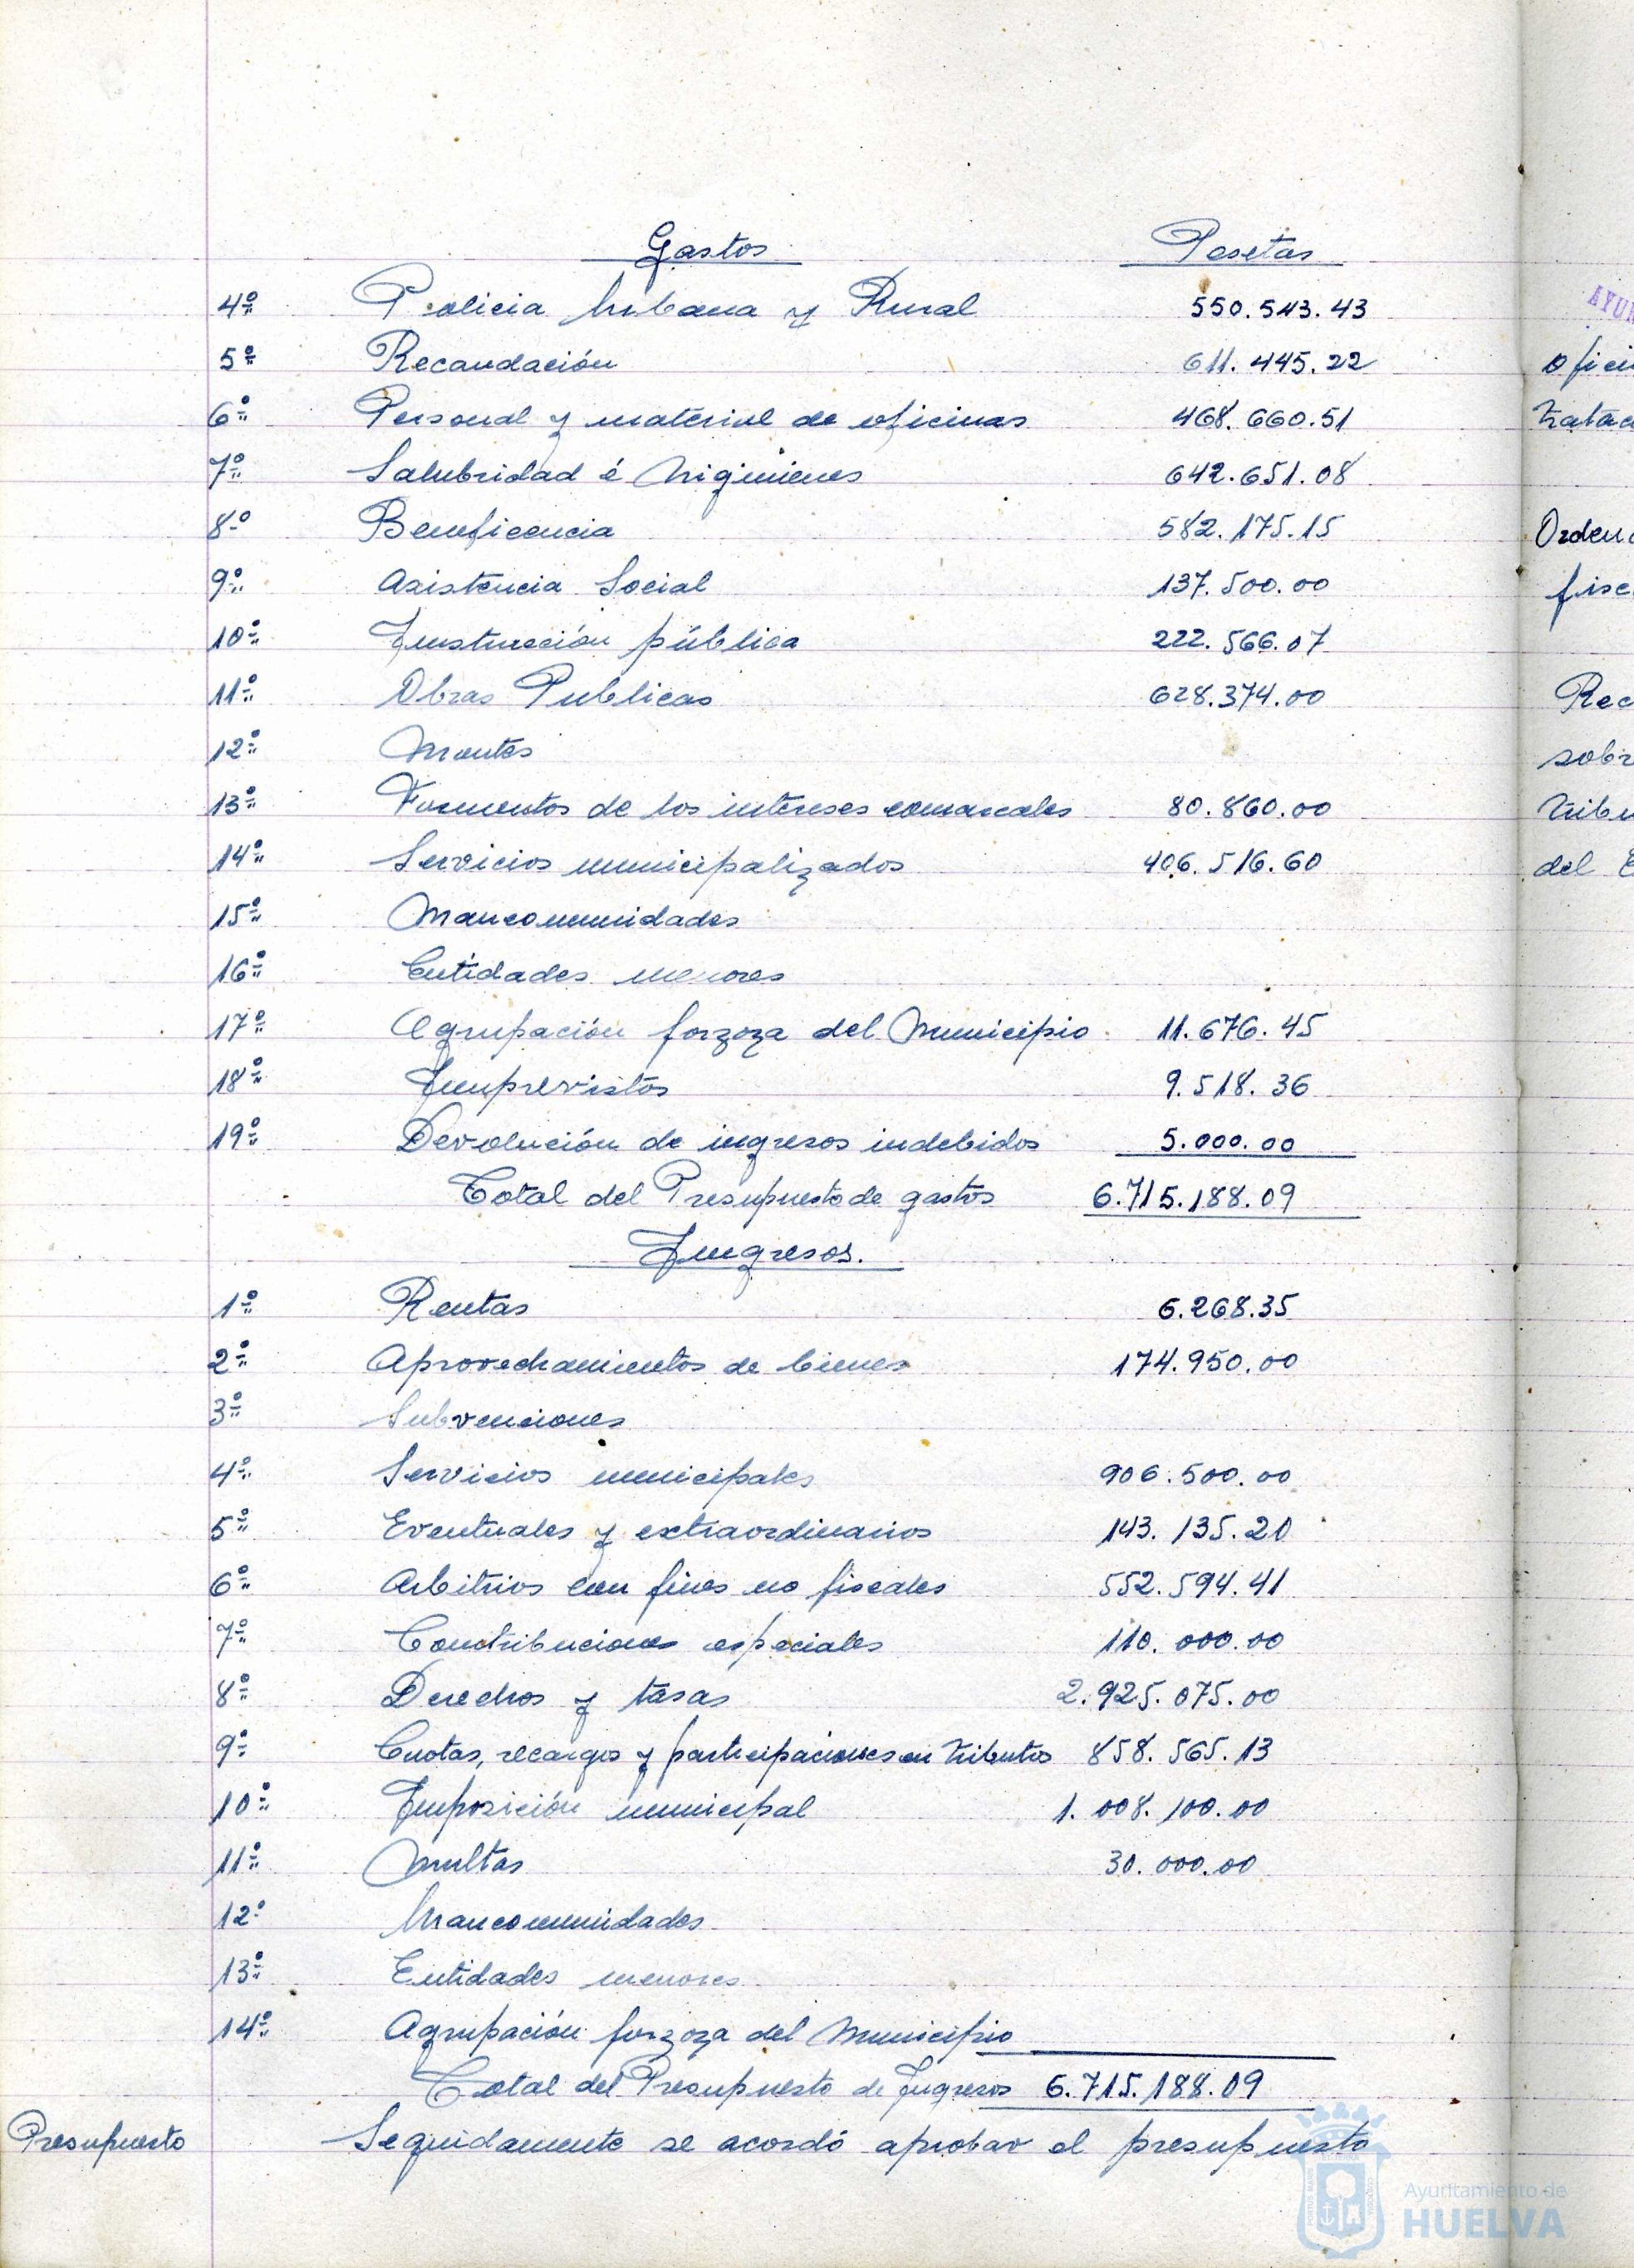 Gastos Pesetas
4º Policia Urbana y Rural 550.543.43
5º Recaudación 611.445.22
6º Personal y material de oficinas 468.660.51
7º Salubridad é higinienes 642.651.08
8º Beneficencia 582.175.15
9º Asistencia Social 137.500.00
10º Instrucción pública 222.566.07
11º Obras Publicas 628.374.00
12º Montes
13º Fomentos de los intereses comarcales 80.860.00
14º Servicios municipalizados 406.516.60
15º Mancomunidades
16º Entidades menores
17º Agrupación forzoza del Municipio 11.676.45
18º Imprevistos 9.518.36
19º Devolución de ingresos indebidos 5.000.00
Total del Presupuesto de gastos 6.715.188.09
Ingresos.
1º Rentas 6.268.35
2º Aprovechamientos de bienes 174.950.00
3º Subvenciones
4º Servicios municipales 906.500.00
5º Eventuales y extraordinarios 143.135.20
6º Arbitrios con fines no fiscales 552.594.41
7º Contribuciones especiales 110.000.00
8º Derechos y tasas 2.925.075.00
9º Cuotas, recargos y participaciones en tributos 858.565.13
10º Imposición municipal 1.008.100.00
11º Multas 30.000.00
12º Mancomunidades
13º Entidades menores
14º Agrupación forzoza del Municipio
Total del Presupuesto de Ingresos 6.715.188.09
Presupuesto Seguidamente se acordó aprobar el presupuesto
Ayuntamiento de
HUELVA